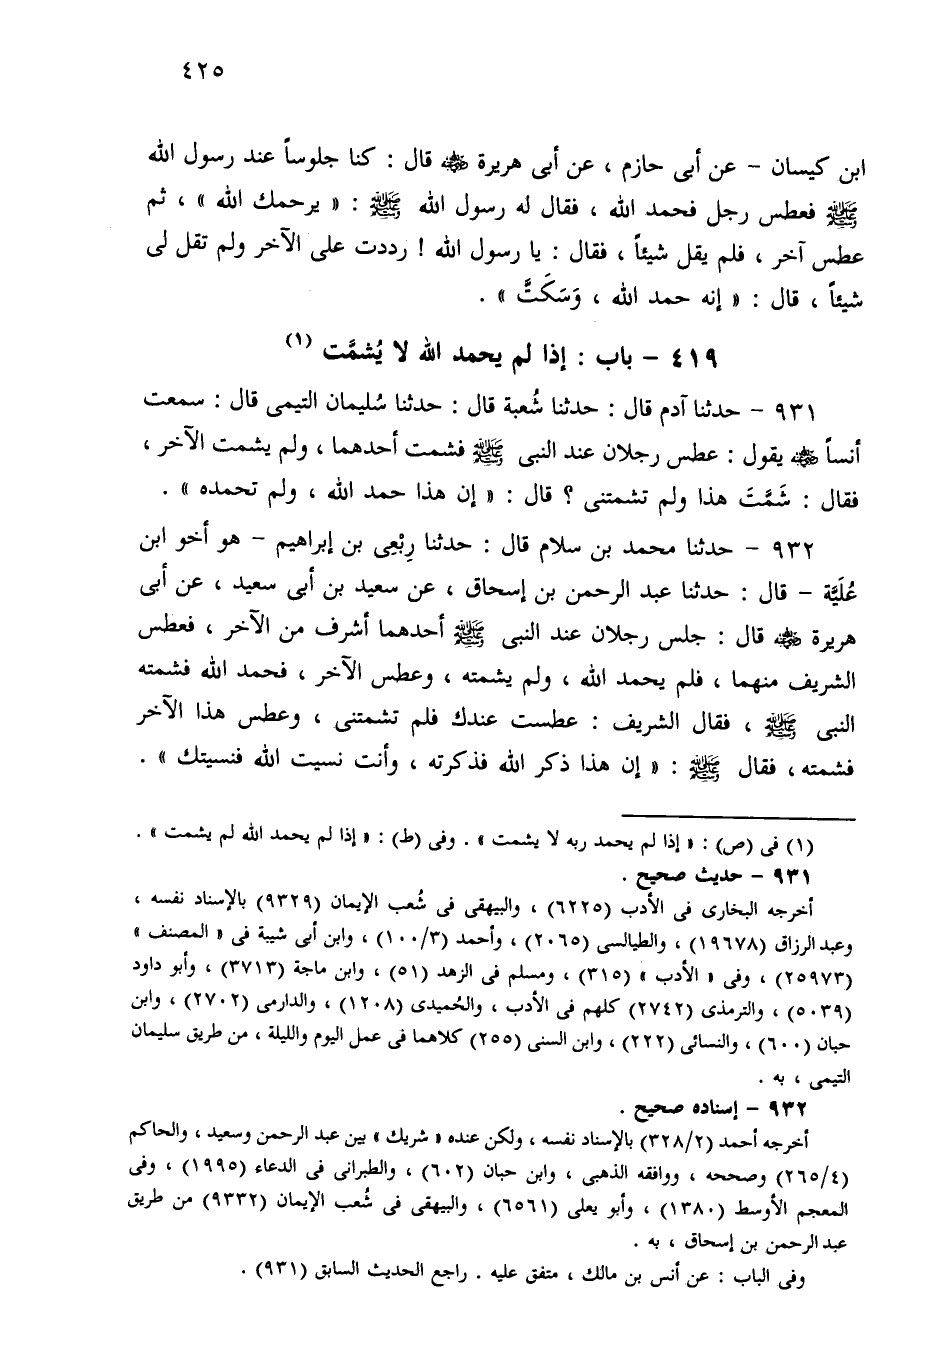 ٤٢٥
ابن كيسان – عن أبى حازم ، عن أبى هريرة ﵁ قال : كنا جلوساً عند رسول الله
ﷺ فعطس رجل فحمد الله ، فقال له رسول الله ﷺ : « يرحمك الله » ، ثم
عطس آخر ، فلم يقل شيئاً ، فقال : يا رسول الله ! رددت على الآخر ولم تقل لى
شيئاً ، قال : « إنه حمد الله ، وَسَكَتَّ » .
٤١٩ – باب : إذا لم يحمد الله لا يُشمَّت (١)
٩٣١ – حدثنا آدم قال : حدثنا شُعبة قال : حدثنا سُليمان التيمى قال : سمعت
أنساً ﵁ يقول : عطس رجلان عند النبى ﷺ فشمت أحدهما ، ولم يشمت الآخر ،
فقال : شَمَّتَ هذا ولم تشمتنى ؟ قال : « إن هذا حمد الله ، ولم تحمده » .
٩٣٢ – حدثنا محمد بن سلام قال : حدثنا رِبْعِى بن إبراهيم – هو أخو ابن
عُلَيَّة – قال : حدثنا عبد الرحمن بن إسحاق ، عن سعيد بن أبى سعيد ، عن أبى
هريرة ﵁ قال : جلس رجلان عند النبى ﷺ أحدهما أشرف من الآخر ، فعطس
الشريف منهما ، فلم يحمد الله ، ولم يشمته ، وعطس الآخر ، فحمد الله فشمته
النبى ﷺ ، فقال الشريف : عطست عندك فلم تشمتنى ، وعطس هذا الآخر
فشمته ، فقال ﷺ : « إن هذا ذكر الله فذكرته ، وأنت نسيت الله فنسيتك » .
(١) فى (ص) : « إذا لم يحمد ربه لا يشمت » . وفى (ط) : « إذا لم يحمد الله لم يشمت » .
٩٣١ – حديث صحيح .
أخرجه البخارى فى الأدب (٦٢٢٥) ، والبيهقى فى شُعب الإيمان (٩٣٢٩) بالإسناد نفسه ،
وعبد الرزاق (١٩٦٧٨) ، والطيالسى (٢٠٦٥) ، وأحمد (١٠٠/٣) ، وابن أبى شيبة فى « المصنف »
(٢٥٩٧٣) ، وفى « الأدب » (٣١٥) ، ومسلم فى الزهد (٥١) ، وابن ماجة (٣٧١٣) ، وأبو داود
(٥٠٣٩) ، والترمذى (٢٧٤٢) كلهم فى الأدب ، والحُميدى (١٢٠٨) ، والدارمى (٢٧٠٢) ، وابن
حبان (٦٠٠) ، والنسائى (٢٢٢) ، وابن السنى (٢٥٥) كلاهما فى عمل اليوم والليلة ، من طريق سليمان
التيمى ، به .
٩٣٢ – إسناده صحيح .
أخرجه أحمد (٣٢٨/٢) بالإسناد نفسه ، ولكن عنده « شريك » بين عبد الرحمن وسعيد ، والحاكم
(٢٦٥/٤) وصححه ، ووافقه الذهبى ، وابن حبان (٦٠٢) ، والطبرانى فى الدعاء (١٩٩٥) ، وفى
المعجم الأوسط (١٣٨٠) ، وأبو يعلى (٦٥٦١) ، والبيهقى فى شُعب الإيمان (٩٣٣٢) من طريق
عبد الرحمن بن إسحاق ، به .
وفى الباب : عن أنس بن مالك ، متفق عليه . راجع الحديث السابق (٩٣١) .